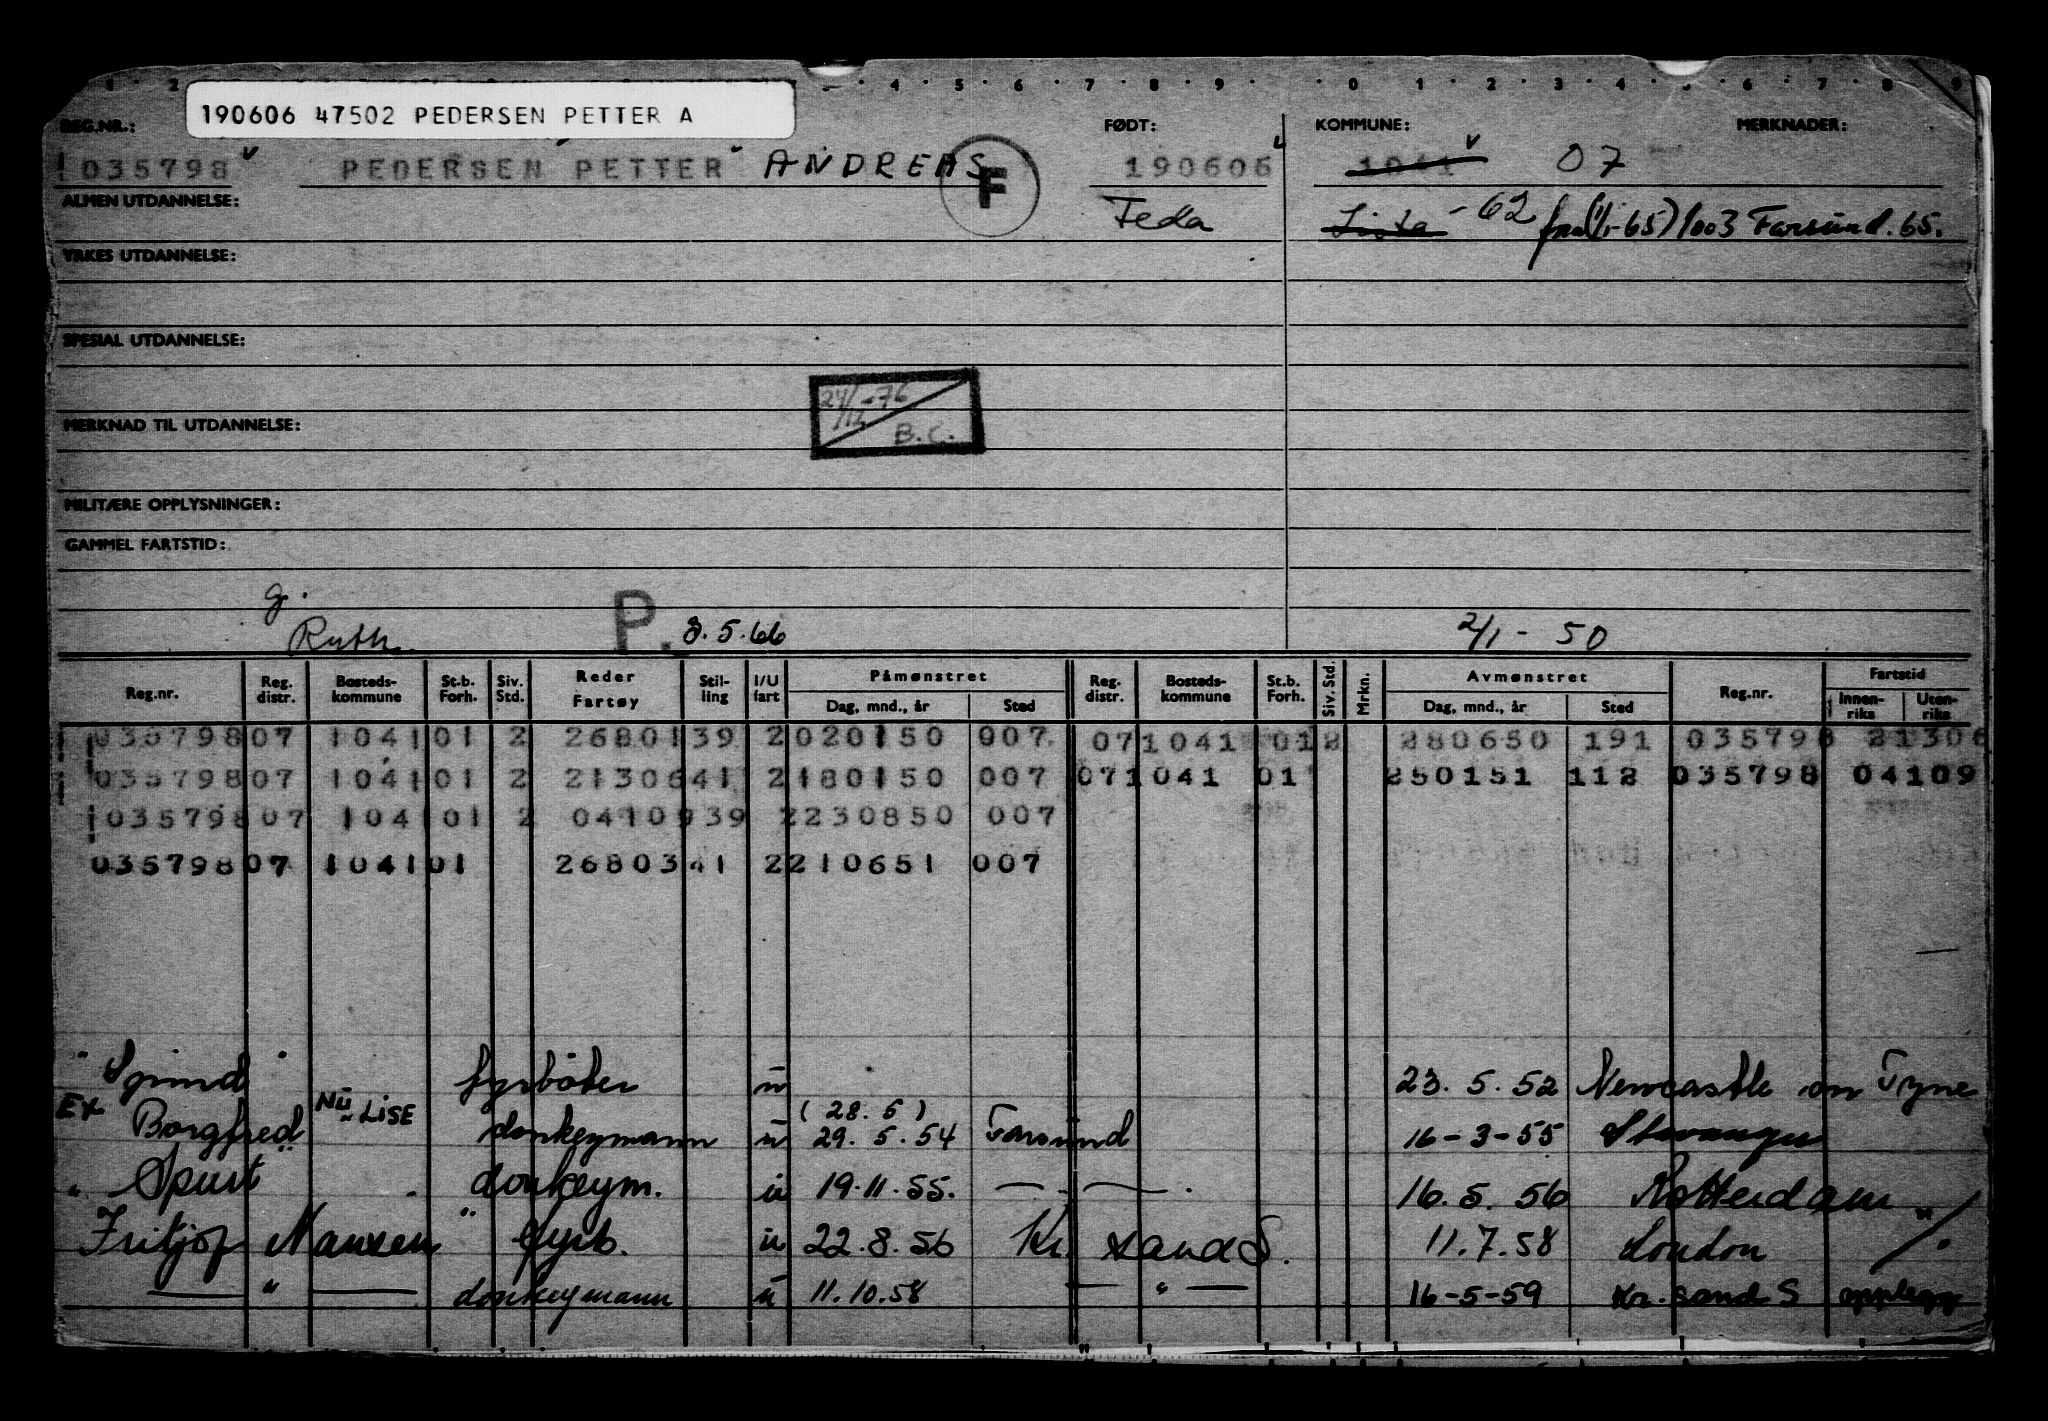 1 2 4 5 6 7 8 9 0 1 2 3 4 5 6 7 8 9
190606 47502 PEDERSEN PETTER A
REG.NR.: FØDT: KOMMUNE: MERKNADER:
035798 PEDERSEN PETTER ANDREAS F 190606 1041 07
ALMEN UTDANNELSE: Feda Lista -62 fra (1/1-65) 1003 Farsund. 65.
YRKES UTDANNELSE:
SPESIAL UTDANNELSE:
24/12-76
B.C.
MERKNAD TIL UTDANNELSE:
MILITÆRE OPPLYSNINGER:
GAMMEL FARTSTID:
g.
Ruth P. 3.5.66 2/1 - 50
Reg.nr. Reg. distr. Bosteds-kommune St.b. Forh. Siv. Std. Reder Fartøy Stil-ling I/U fart Påmønstret Dag, mnd., år Sted Reg. distr. Bosteds-kommune St.b. Forh. Siv. Std. Mrkn. Avmønstret Dag, mnd., år Sted Reg.nr. Fartstid Innen-riks Uten-riks
035798 07 1041 01 2 26801 39 2 020150 007 07 1041 01 2 280650 191 035798 21306
035798 07 1041 01 2 21306 41 2 180150 007 07 1041 01 250151 112 035798 04109
035798 07 1041 01 2 04109 39 2 230850 007
035798 07 1041 01 26803 41 2 210651 007
" Spind " fyrbøter u 23.5.52 Newcastle on Tyne
Ex Borgfred NÜ LISE donkeymann u (28.5) 29.5.54 Farsund 16-3-55 Stavanger
" Spurt " donkeym. u 19.11.55. — " — 16.5.56 Rotterdam
Fritjof Nansen " fyrb. u 22.8.56 Kr. sand S. 11.7.58 London "/.
— " — donkeymann u 11.10.58 — " — 16-5-59 Kr. sand S opplegg